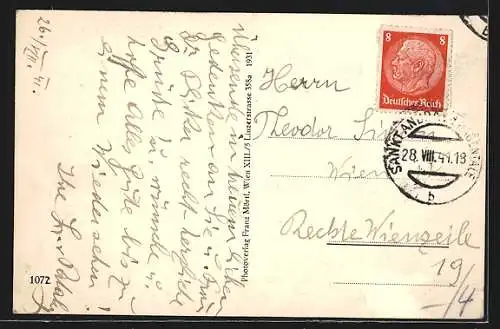 26./VIII. 41.
Übersende in treuem
Gedenken an Sie u. Frau
recht herzliche
Grüße u. wünsche u.
hoffe alles Gute bis zu
einem Wiedersehen!
Ihre
1072
Photoverlag Franz Mörtl, Wien XIII/5 Linzerstrasse 358a 1931
8 8
Deutsches Reich
SANKT AN
28.VIII.41.18
b
Herrn
Theodor
Wien
Rechte Wienzeile
19/
/4